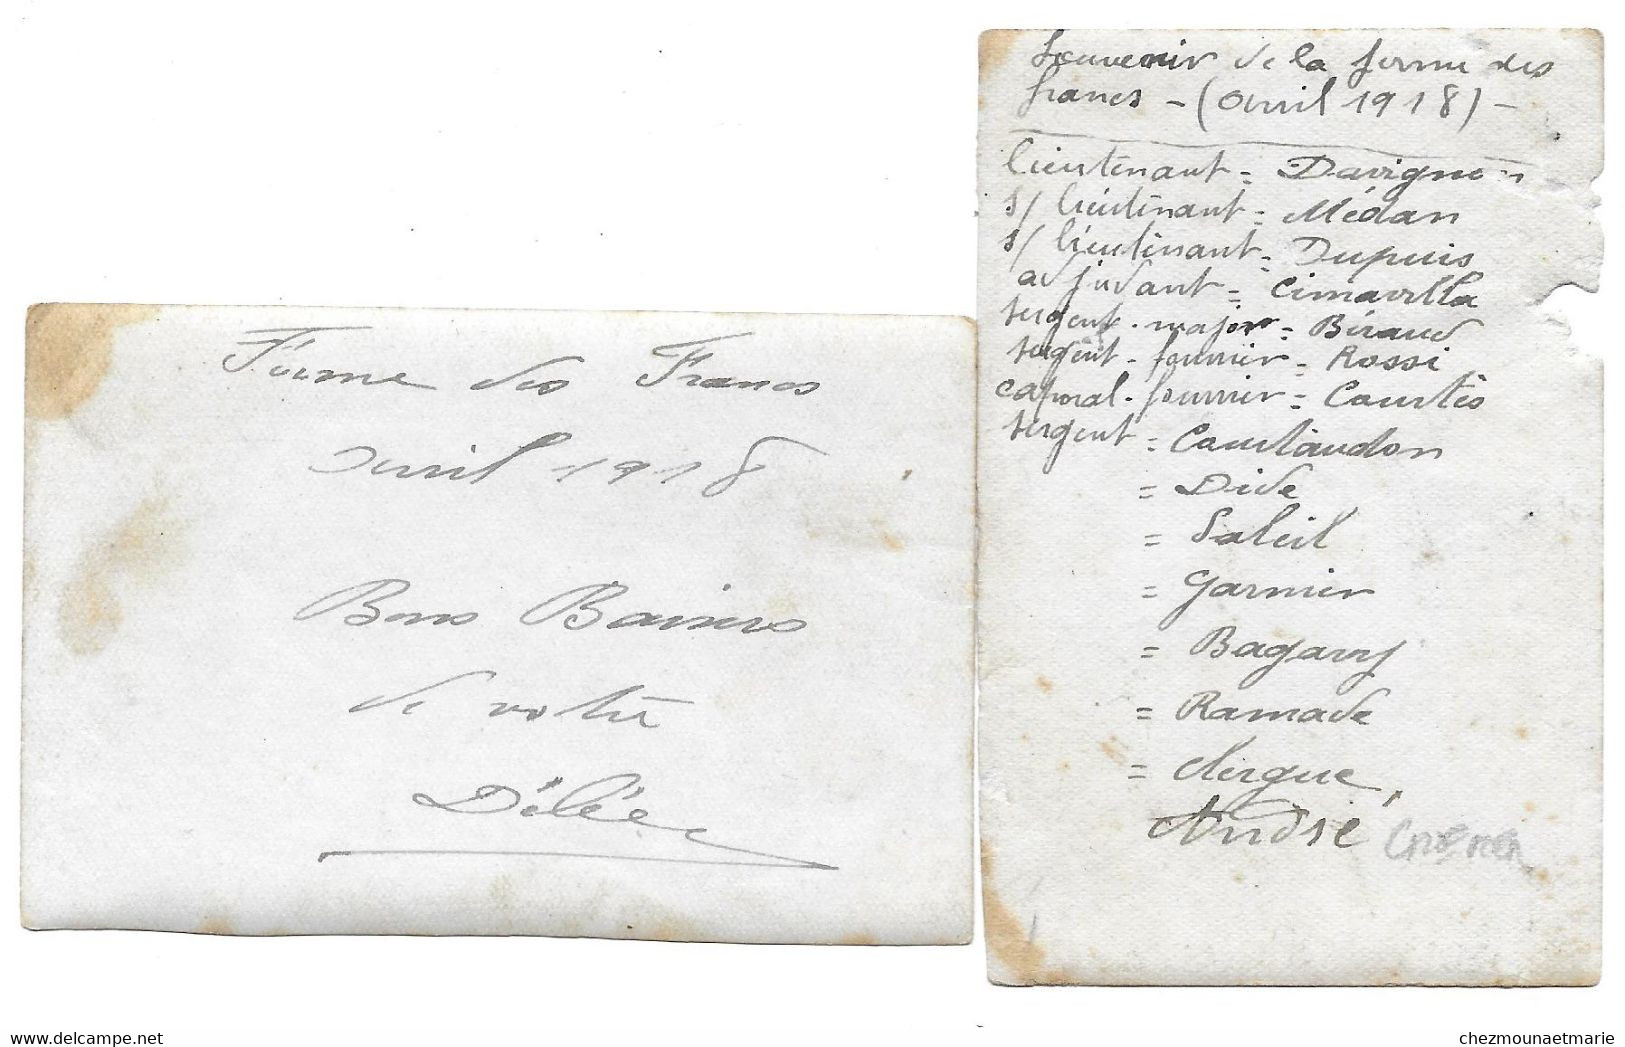 Ferme des Francs
Avril 1918
Bons Baisers
de votre
Souvenir de la ferme des
francs - (Avril 1918) -
lieutenant = Davignon
s/ lieutenant = Médan
s/ lieutenant = Dupuis
adjudant = Cimavilla
sergent-major = Béraud
sergent-fourrier = Rossi
caporal-fourrier = Courtès
sergent = Courtaudon
= Dide
= Soleil
= Garnier
= Bagarry
= Ramade
= Clergue,
André
chezmounaetmarie